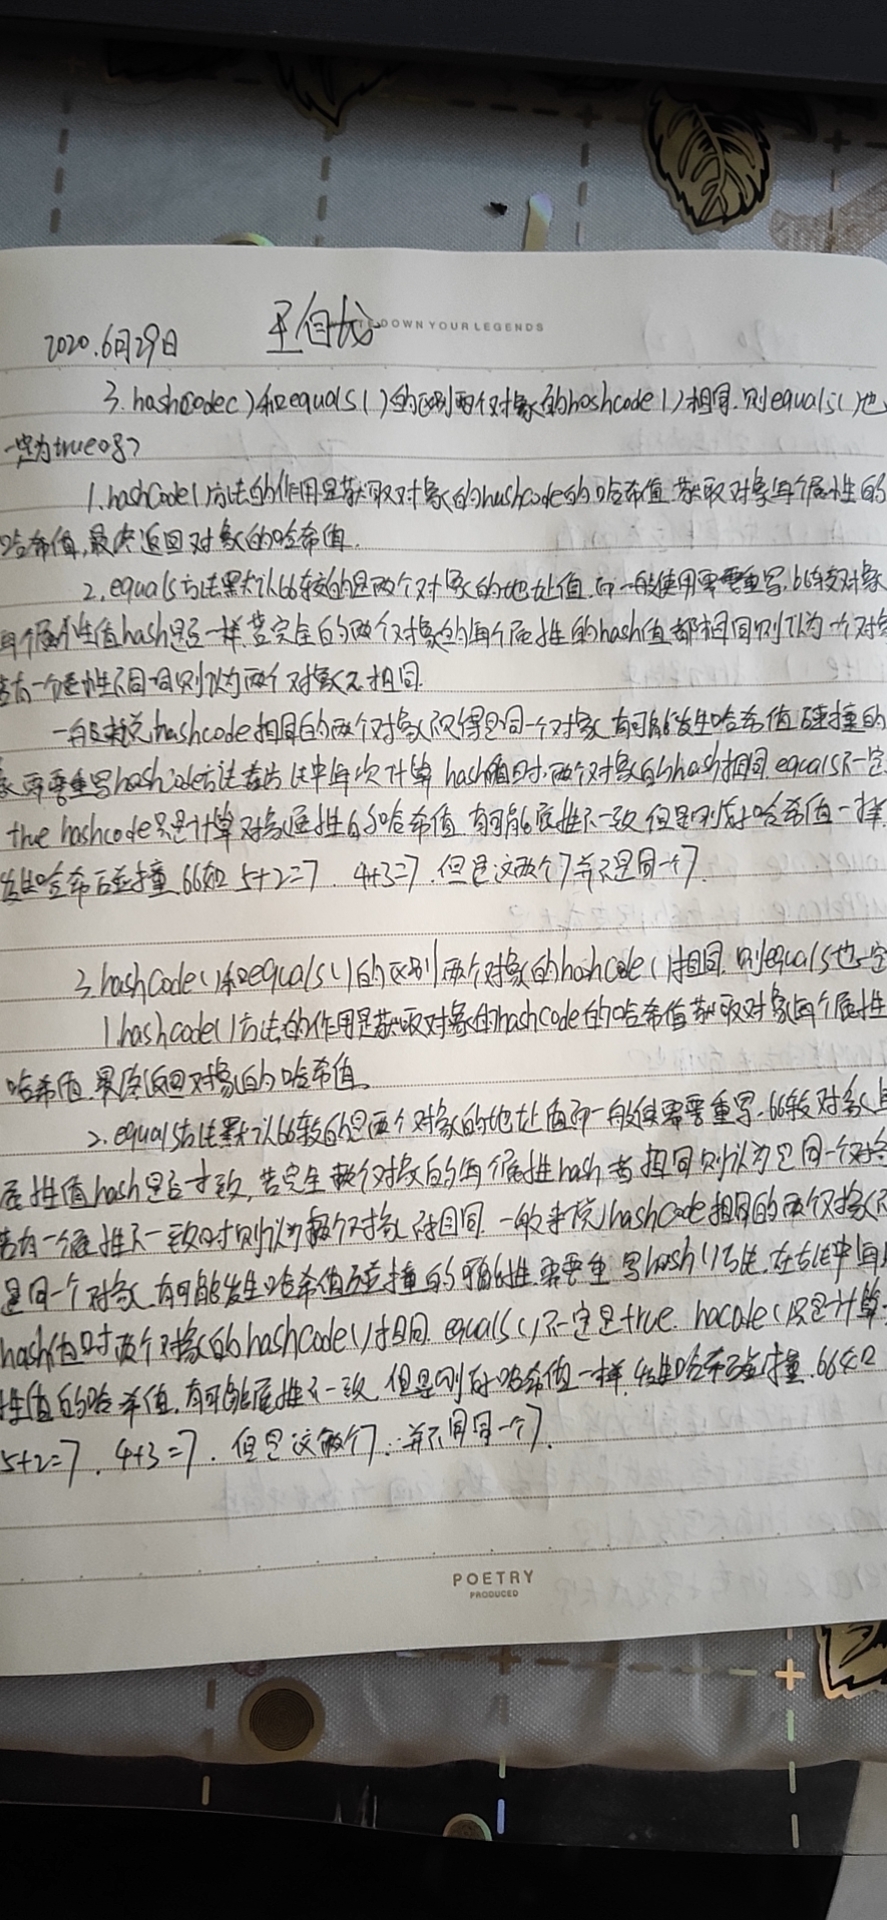 DOWN YOUR LEGENDS
2020.6月29日
3.hashCode()和equals()的区别两个对象的hashcode()相同.则equals()也
一定为true吗?
1.hashCode()方法的作用是获取对象的hashcode的哈希值 获取对象每个属性的
哈希值,最终返回对象的哈希值.
2.equals方法默认比较的是两个对象的地址值.而一般使用需要重写.比较对象
每个属性值hash是否一样.若完全的两个对象的每个属性的hash值都相同则认为一个对象
若有一个属性不同 则认为两个对象不相同.
一般来说hashcode相同的两个对象不见得是同一个对象 有可能发生哈希值碰撞的
需要重写hashcode方法 法中每次计算 hash值时.两个对象的hash相同 equals不一定
true hashcode只是计算对象属性的哈希值 有可能属性不一致 但是刚好哈希值一样
发生哈希碰撞.比如 5+2=7. 4+3=7.但是这两个7并不是同一个7.
3.hashCode()和equals()的区别两个对象的hashCode()相同.则equals也一定
1.hashcode()方法的作用是获取对象的hashCode的哈希值获取对象每个属性
哈希值.最终返回对象的哈希值.
2.equals方法默认比较的是两个对象的地址值而一般使需要重写.比较对象每
属性值hash是否一致,若完全 个对象的每个属性hash 相同则认为是同一个对象
若有一个属性不一致时则认为 个对象 相同.一般来说hashCode相同的两个对象不
是同一个对象.有可能发生哈希值碰撞的可能性.需要重写hash()方法.在方法中每
hash值时两个对象的hashCode()相同.equals()不一定是true. 只是计算
性值的哈希值.有可能属性不一致.但是刚好哈希值一样.发生哈希碰撞.比如
5+2=7. 4+3=7.但是这两个7.并不同同一个7.
POETRY
PRODUCED